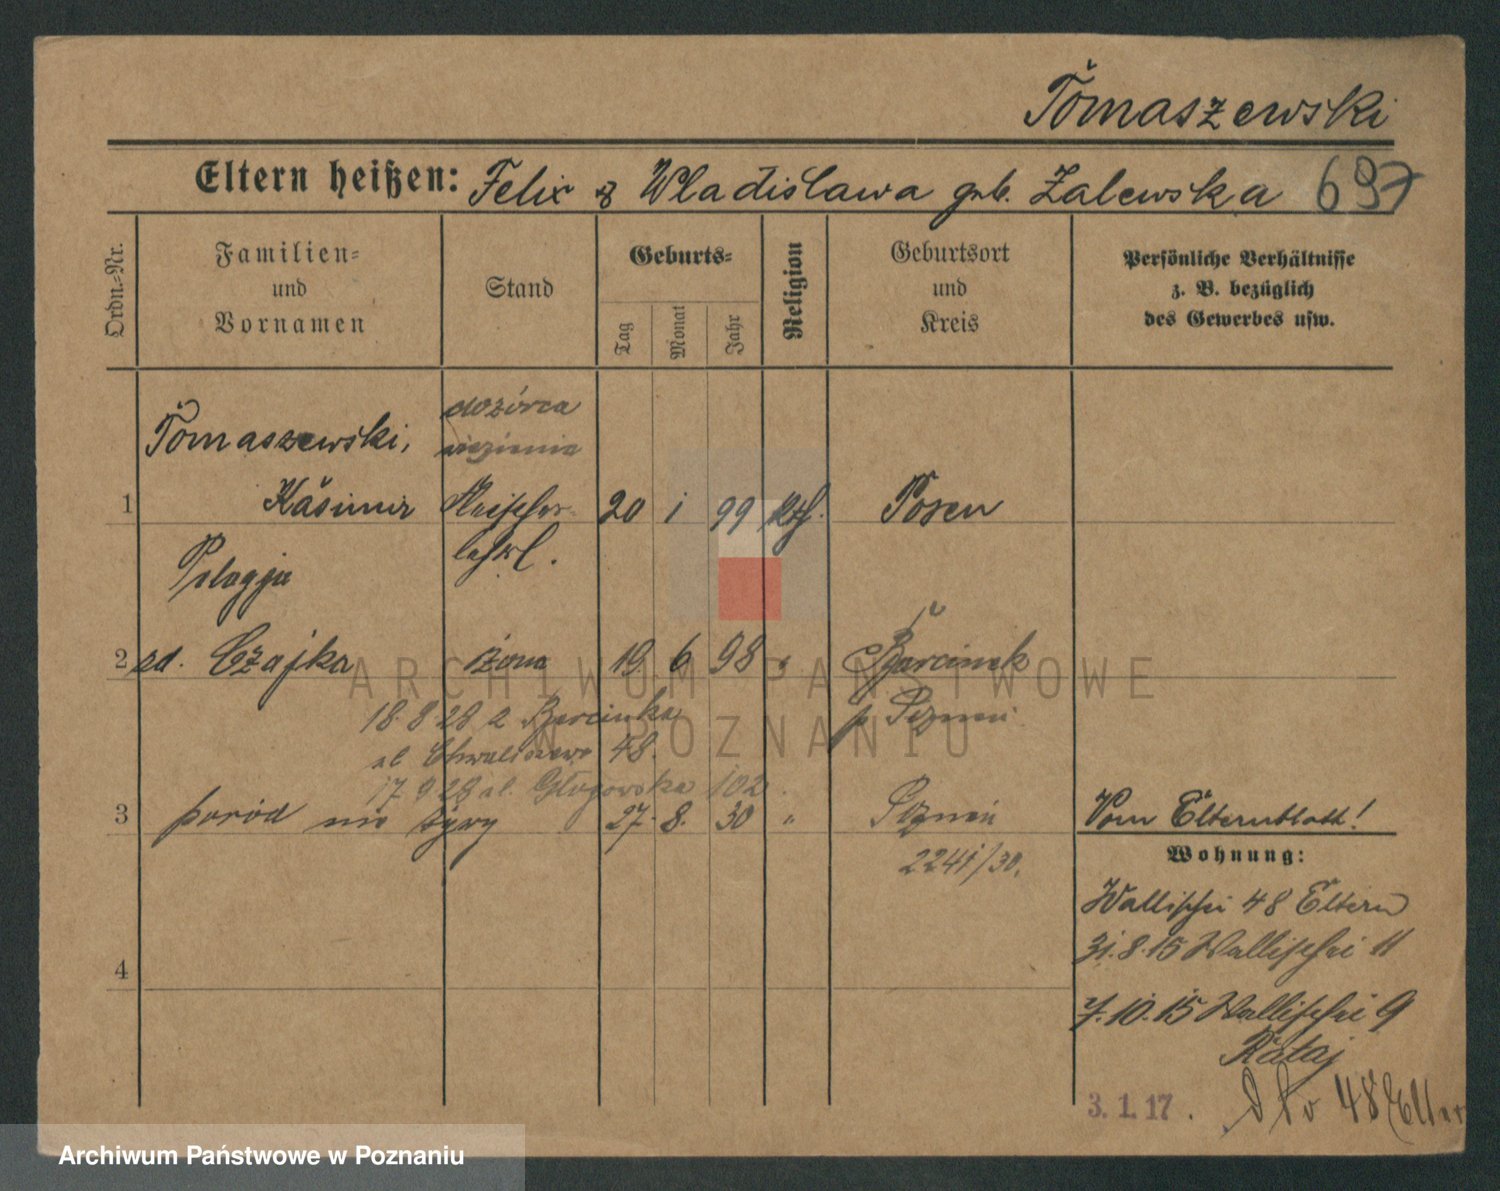 Tomaszewski
Eltern heißen: Felix & Wladislawa geb. Zalewska 697
Ordn.-Nr.
Familien-
und
Vornamen
Stand
Geburts-
Tag
Monat
Jahr
Religion
Geburtsort
und
Kreis
Persönliche Verhältnisse
z. B. bezüglich
des Gewerbes usw.
dozórca
więzienia
Tomaszewski,
1 Kasimir Fleischer- 20 1 99 kth. Posen
lehrl.
Pelagja
2 zd. Czajka żona 19. 6 98 " Barcinek
p. Poznań
18.8.28 z Barcinka
ul. Chwaliszewo 48.
17 9 28 ul. Głogowska 102.
3 poród nie żywy 27. 8. 30 " Poznań
2241/30.
Vom Elternblatt!
Wohnung:
Wallischei 48 Eltern
31.8.15 Wallischei 11
7.10.15 Wallischei 9
Rataj
4
3. 1. 17. 48 Elter
ARCHIWUM PAŃSTWOWE
W POZNANIU
Archiwum Państwowe w Poznaniu